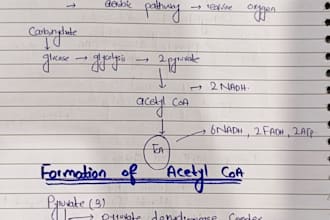 → aerobic pathway → require oxygen
Carbohydrate
glucose → glycolysis → 2 pyruvate
→ 2 NADH.
acetyl CoA
→ 6NADH, 2FADH, 2ATP
TCA
Formation of Acetyl CoA
Pyruvate (3)
→ pyruvate dehydrogenase complex